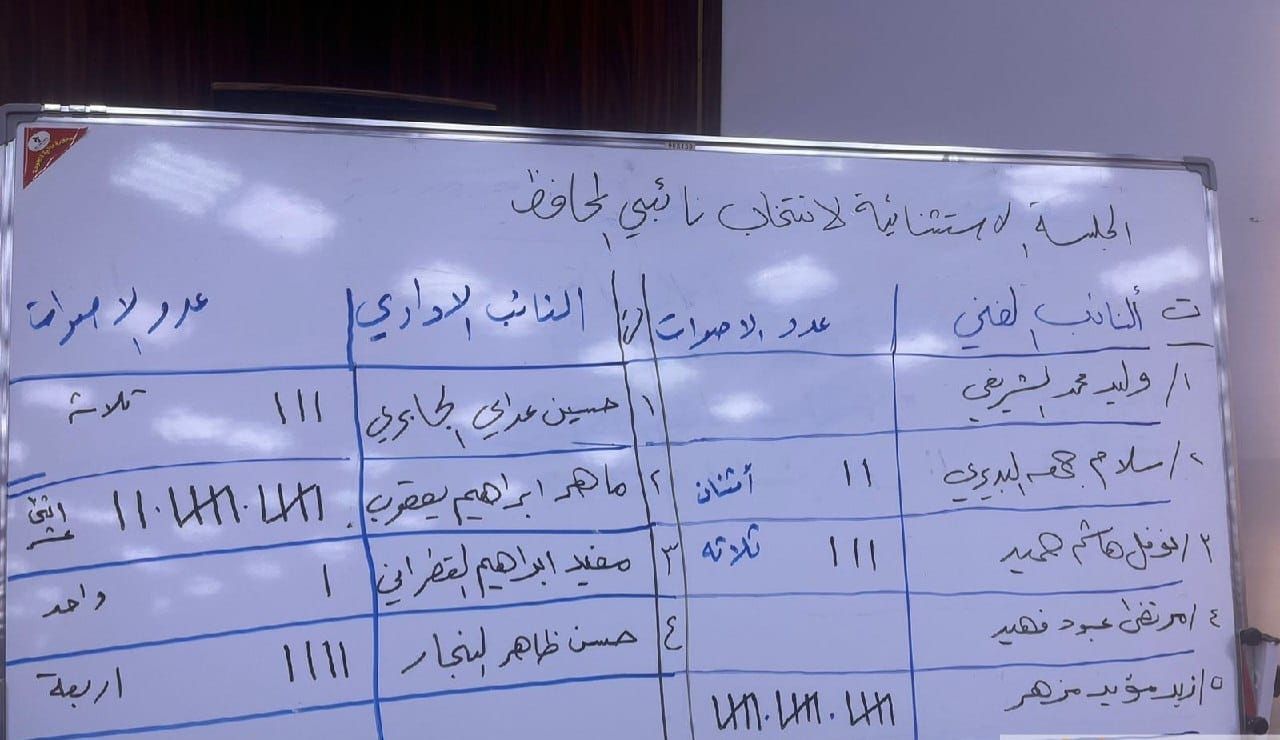 الجلسة الاستثنائية لانتخاب نائبي المحافظ
ت النائب الفني عدد الاصوات ت النائب الاداري عدد الاصوات
١/ وليد محمد الشريفي ١ حسين عداي الجابري ||| ثلاثة
٢/ سلام جمعه البديري || أثنان ٢ ماهر ابراهيم يعقوب اثنى عشر
٣/ نوفل هاشم حميد ||| ثلاثه ٣ مفيد ابراهيم القطراني | واحد
٤/ مرتضى عبود فهيد ٤ حسن ظاهر النجار |||| اربعة
٥/ زيد مؤيد مزهر